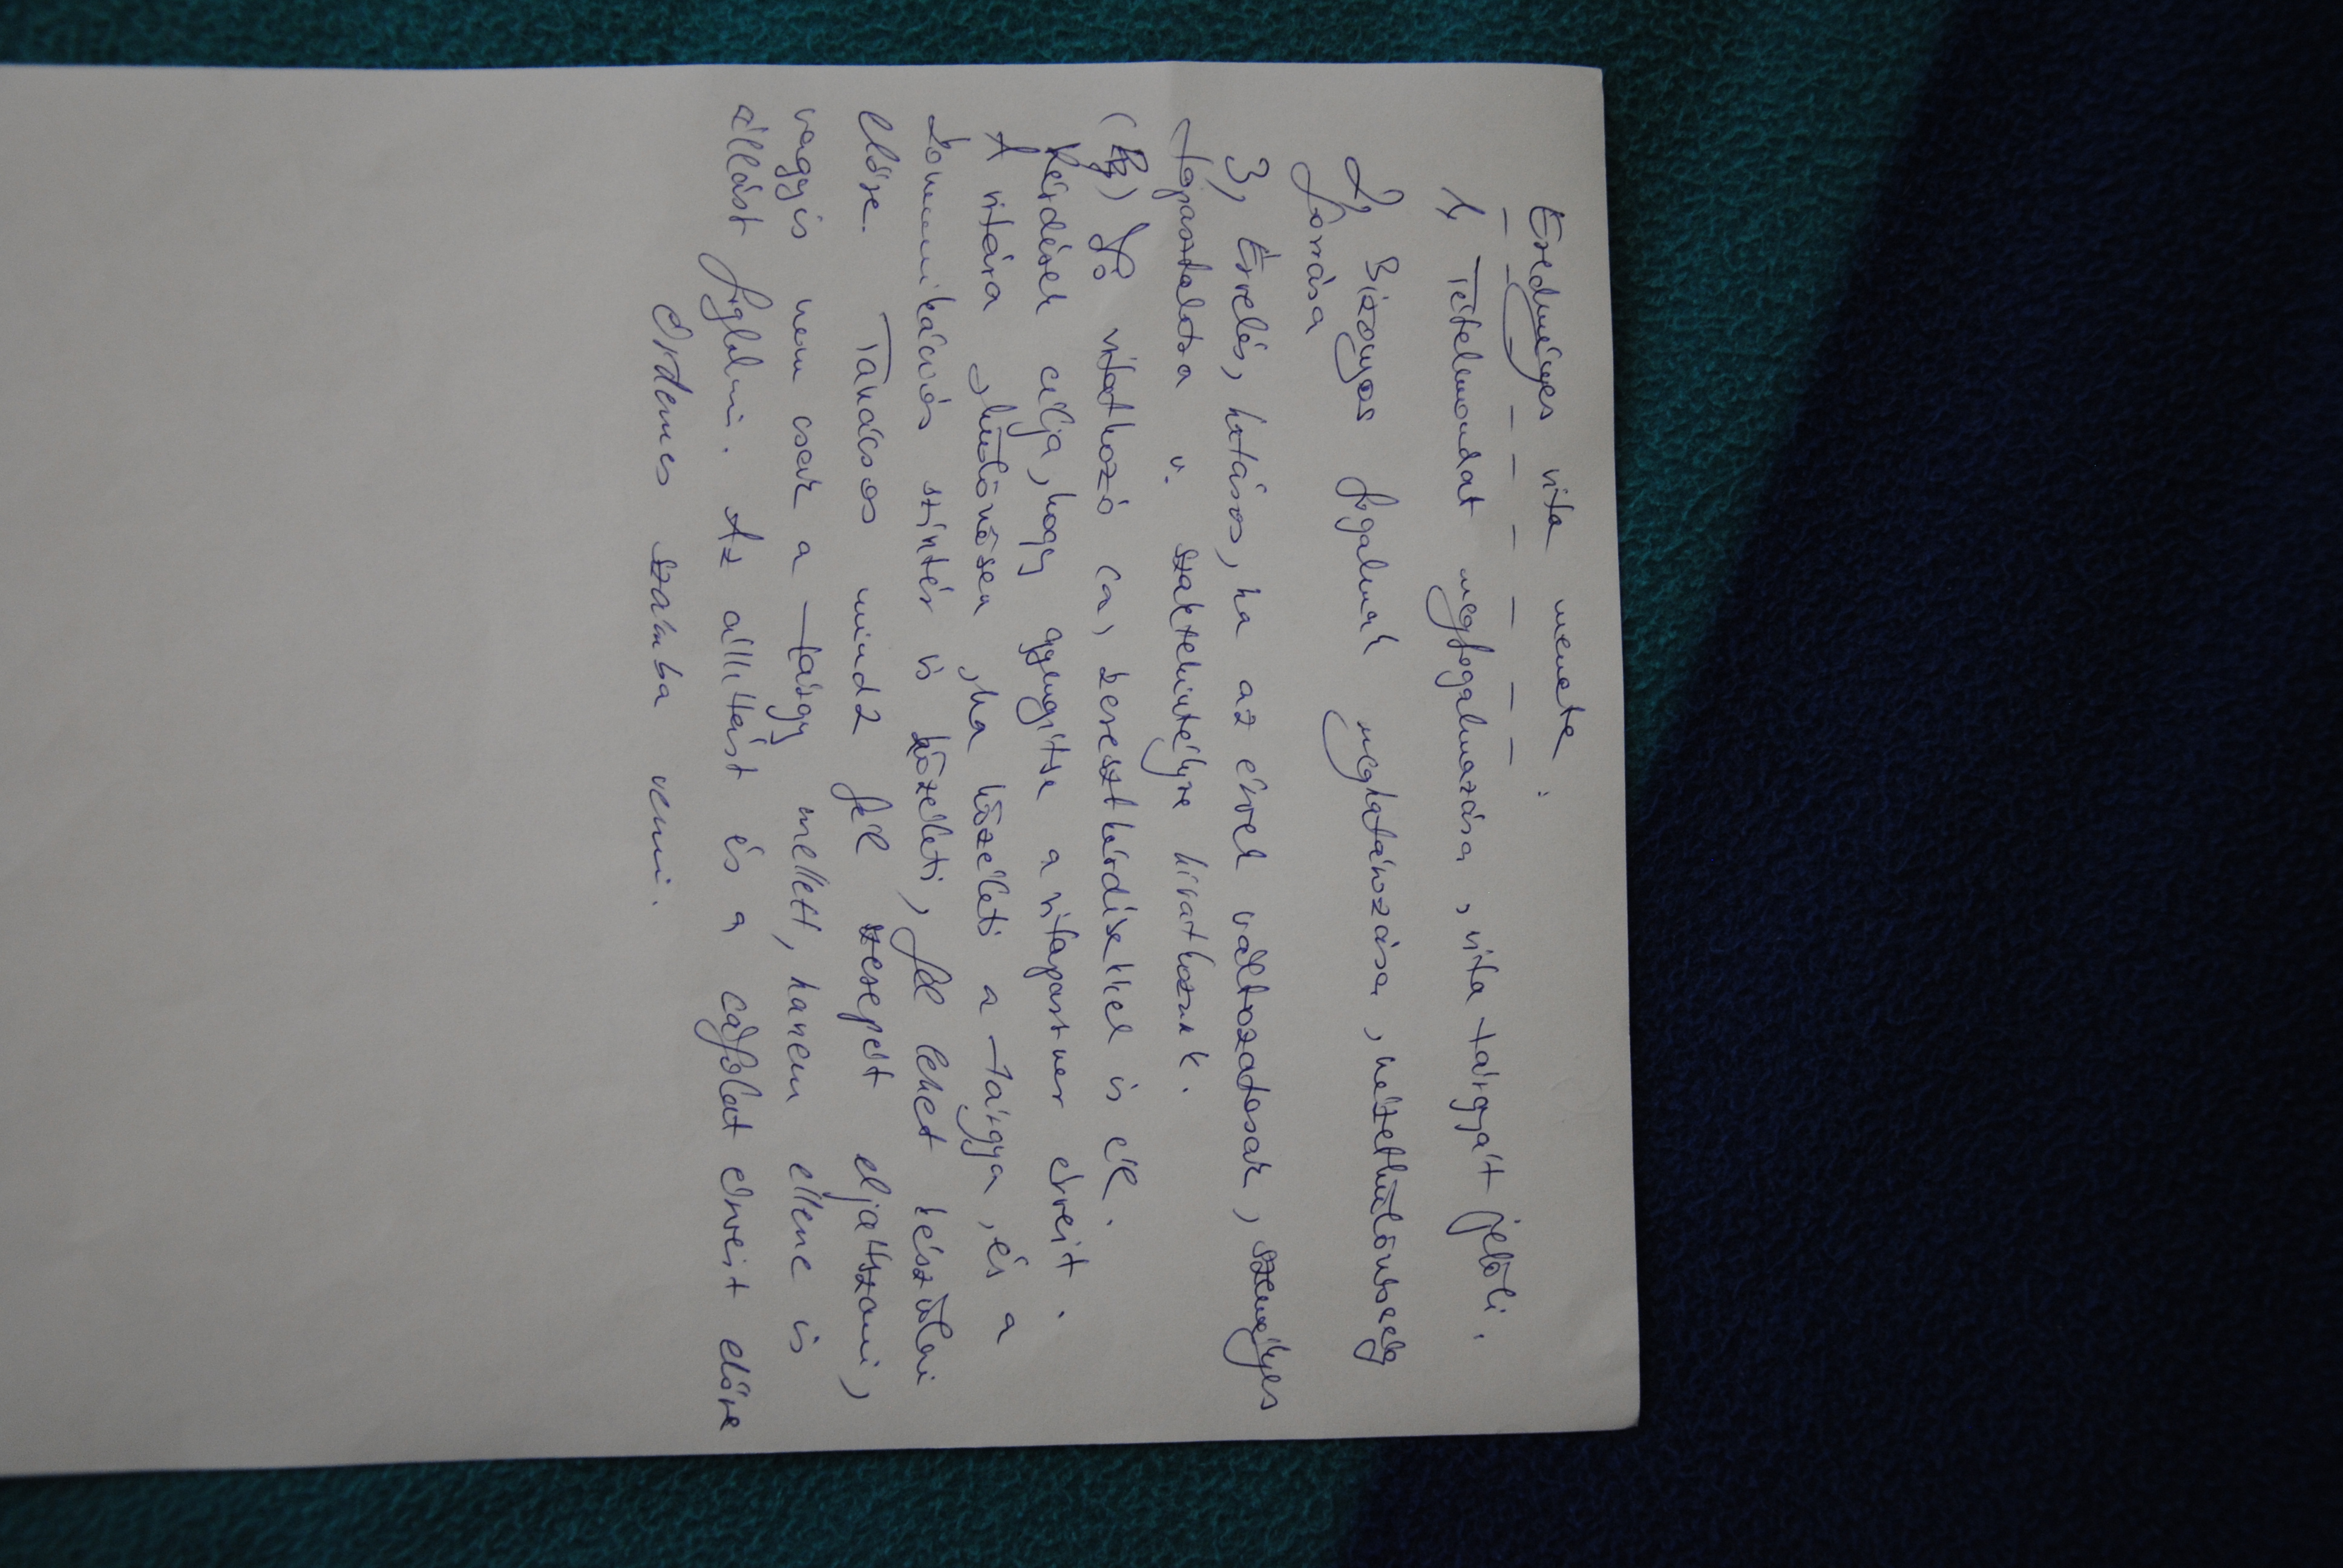 Eredményes vita menete:
1, Tételmondat megfogalmazása, vita tárgyát jelöli.
2, Bizonyos fogalmak meghatározása, nézetkülönbség
forrása
3, Érvelés, hatásos, ha az érvek változatosak, személyes
tapasztalatra v. szaktekintélyre hivatkozunk.
Jó vitatkozó ca, keresztkérdésekkel is él.
Kérdések célja, hogy gyengítse a vitapartner érveit.
A vitára, különösen, ha közéleti a tárgya, és a
kommunikációs színtér is közéleti, fel lehet készülni
előre. Tanácsos mind2 fél szerepét eljátszani,
vagyis nem csak a tárgy mellett, hanem ellene is
állást foglalni. Az állítást és a cáfolat érveit előre
érdemes számba venni.